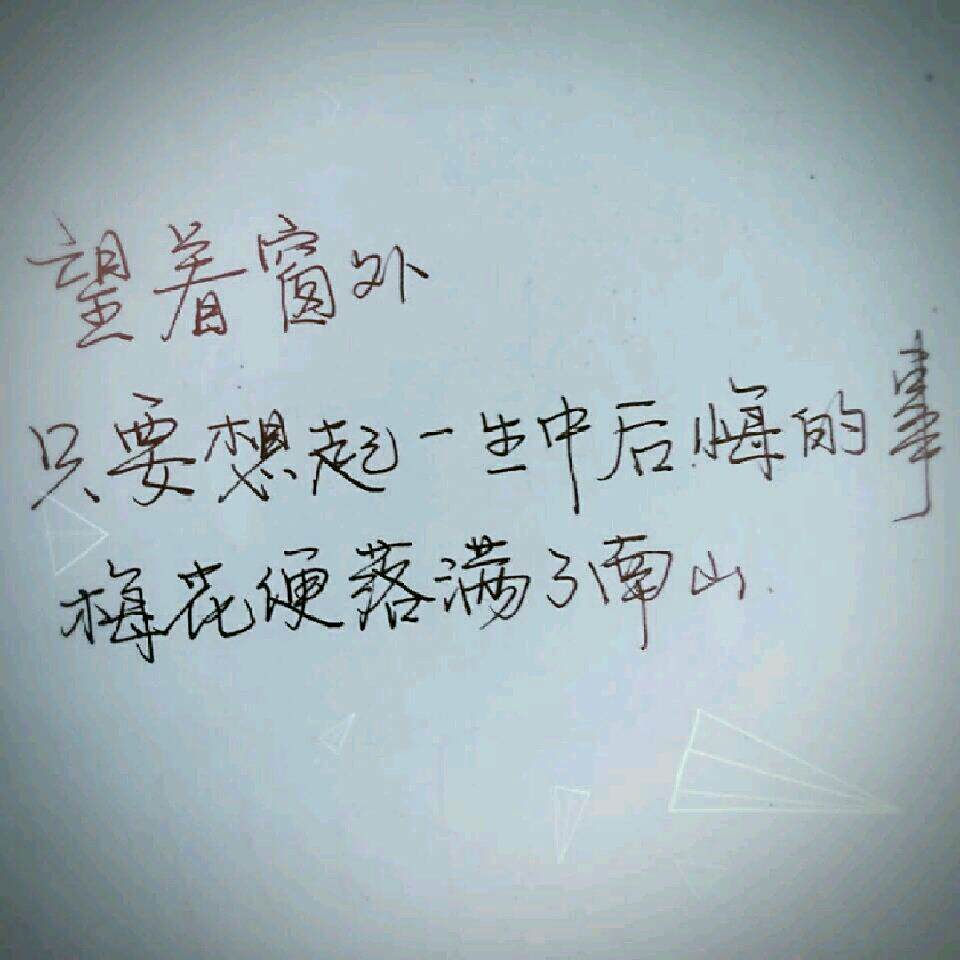 望着窗外
只要想起一生中后悔的事
梅花便落满了南山